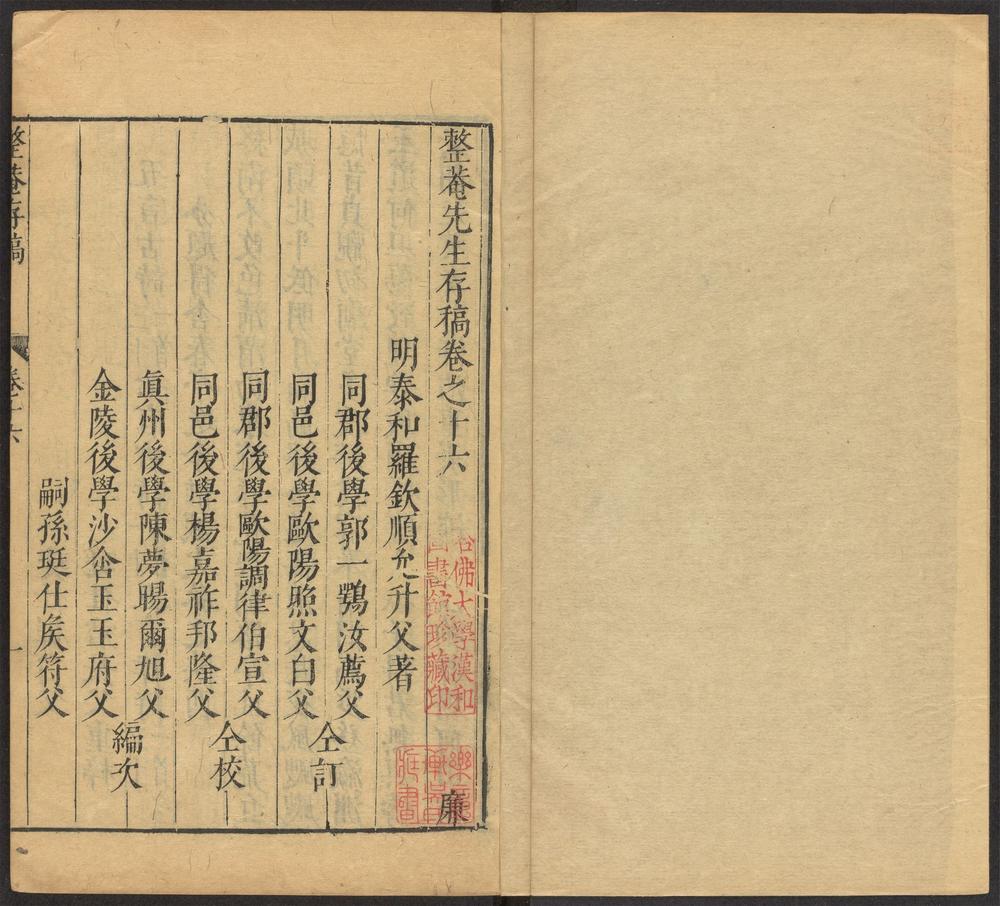 整菴先生存稿卷之十六
明泰和羅欽順允升父著
同郡後學郭一鶚汝薦父
同邑後學歐陽照文白父
仝訂
同郡後學歐陽調律伯宣父
同邑後學楊嘉祚邦隆父
仝校
眞州後學陳夢暘爾旭父
金陵後學沙舍玉玉府父
編次
嗣孫珽仕矦符父
整菴存稿
卷十六
一
哈佛大學漢和
圖書館珍藏印
廉